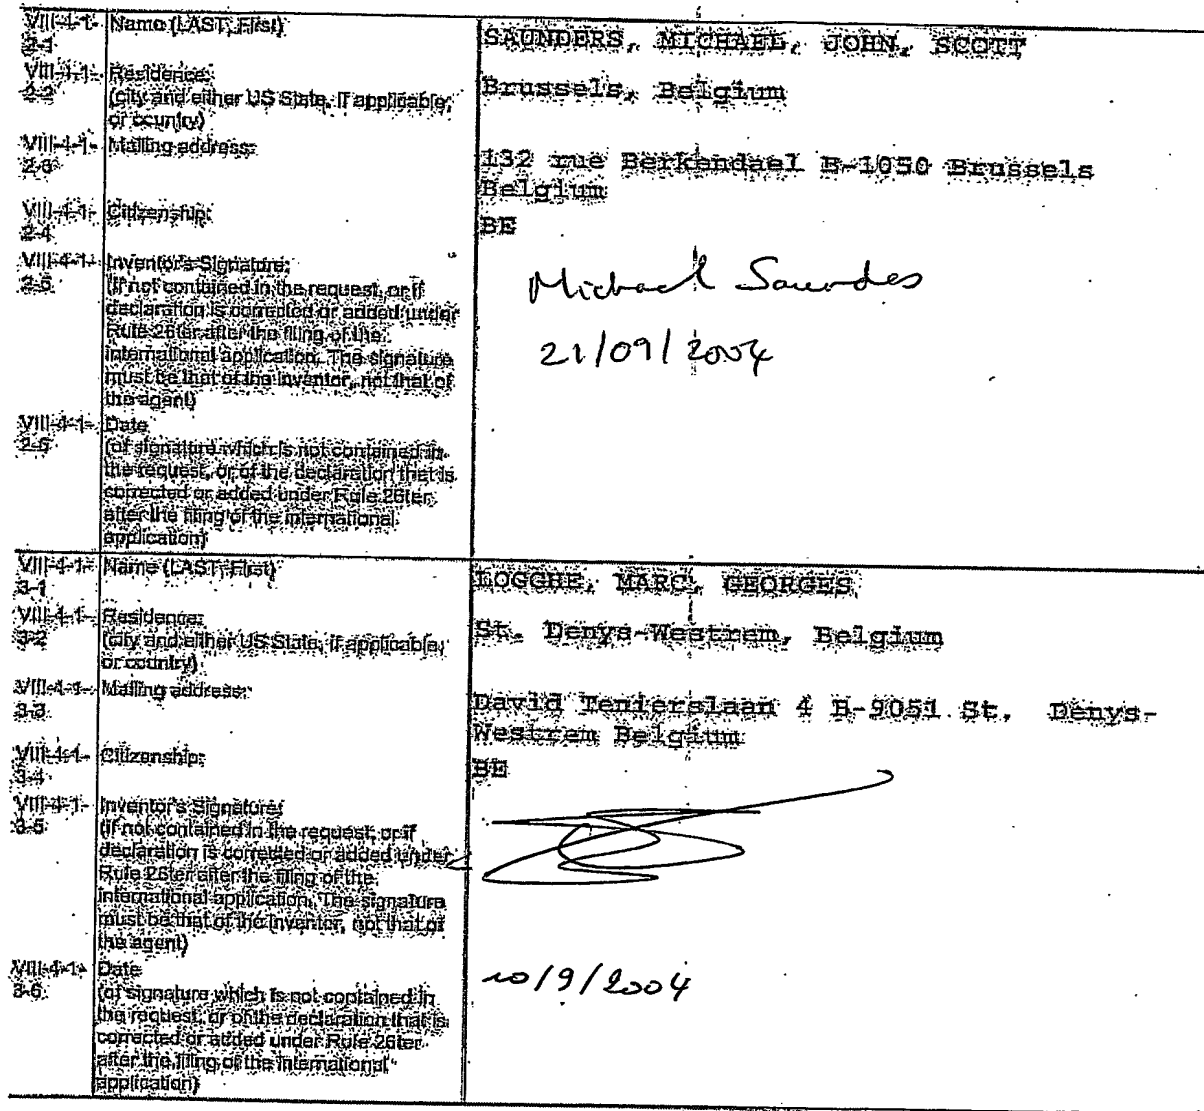 VIII-4-1- Name (LAST, First) SAUNDERS, MICHAEL, JOHN, SCOTT
2-1
VIII-4-1- Residence: Brussels, Belgium
2-2 (city and either US State, if applicable,
or country)
VIII-4-1- Mailing address: 132 rue Berkendael B-1050 Brussels
2-3 Belgium
VIII-4-1- Citizenship: BE
2-4
VIII-4-1- Inventor's Signature: Michael Saunders
2-5 (if not contained in the request, or if
declaration is corrected or added under
Rule 26ter after the filing of the 21/09/2004
international application. The signature
must be that of the inventor, not that of
the agent)
VIII-4-1- Date
2-6 (of signature which is not contained in
the request, or of the declaration that is
corrected or added under Rule 26ter
after the filing of the international
application)
VIII-4-1- Name (LAST, First) LOGGHE, MARC, GEORGES
3-1
VIII-4-1- Residence: St. Denys-Westrem, Belgium
3-2 (city and either US State, if applicable,
or country)
VIII-4-1- Mailing address: David Tenierslaan 4 B-9051 St. Denys-
3-3 Westrem Belgium
VIII-4-1- Citizenship: BE
3-4
VIII-4-1- Inventor's Signature:
3-5 (if not contained in the request, or if
declaration is corrected or added under
Rule 26ter after the filing of the
international application. The signature
must be that of the inventor, not that of
the agent)
VIII-4-1- Date 10/9/2004
3-6 (of signature which is not contained in
the request, or of the declaration that is
corrected or added under Rule 26ter
after the filing of the international
application)